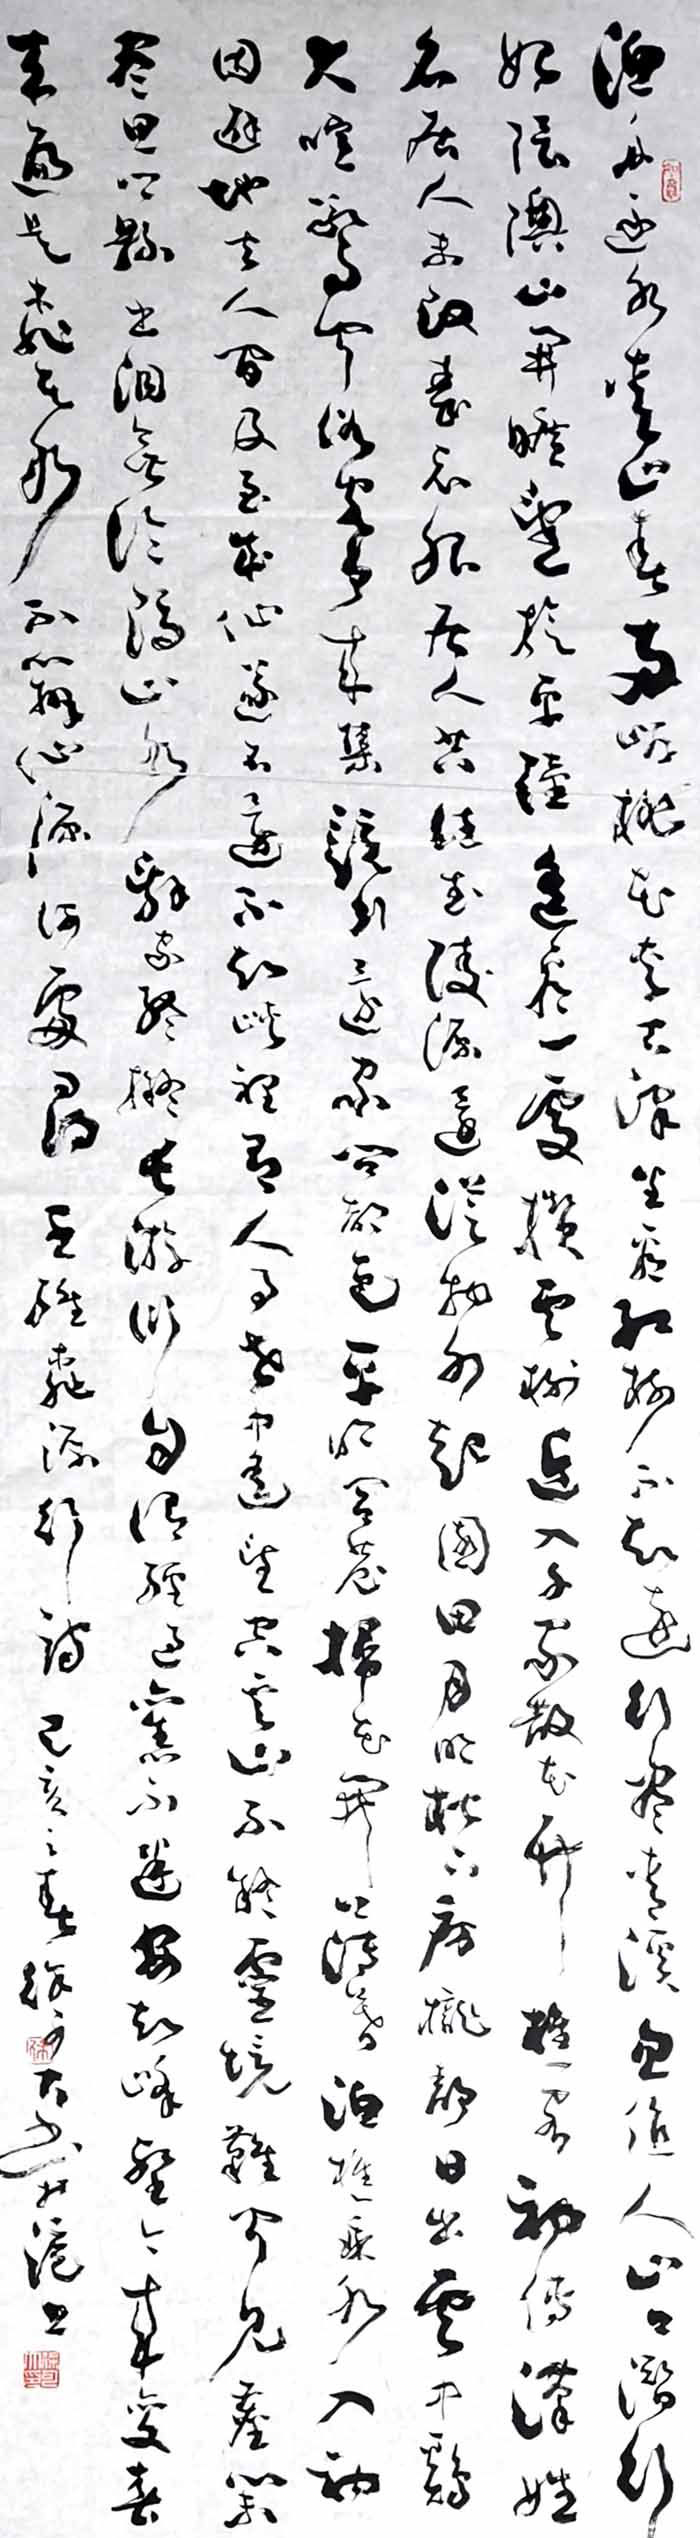 漁舟逐水愛山春兩岸桃花夾古津坐看紅樹不知遠行盡青溪忽值人山口潛行
始隈隩山開曠望旋平陸遙看一處攢雲樹近入千家散花竹樵客初傳漢姓
名居人未改秦衣服居人共住武陵源還從物外起園田月明松下房櫳靜日出雲中雞
犬喧驚聞俗客爭來集競引還家問都邑平明閭巷掃花開薄暮漁樵乘水入初
因避地去人間及至成仙遂不還不知峽裡有人事世中遙望空雲山不疑靈境難聞見塵心未
盡思鄉縣出洞無論隔山水辭家終擬長游衍自謂經過舊不迷安知峰壑今來變春
來遍是桃花水不辨仙源何處尋王維桃源行詩己亥之春徐書於滬上